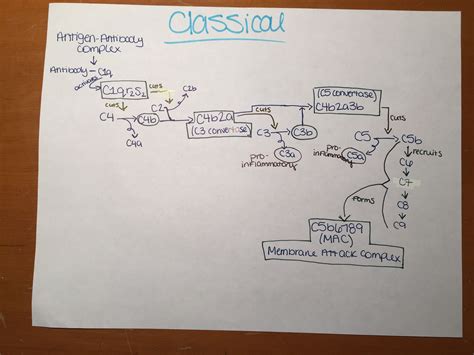 Classical
Antigen-Antibody
Complex
Antibody - C1q
activates
C1qr2s2
cuts
cuts
C2b
C4
C4b
C2
C4a
C4b2a
(C3 convertase)
cuts
C3
C3b
C3a
pro-
inflammatory
(C5 convertase)
C4b2a3b
cuts
C5
C5b
C5a
pro-
inflammatory
recruits
C6
C7
C8
C9
forms
C5b6789
(MAC)
Membrane Attack Complex